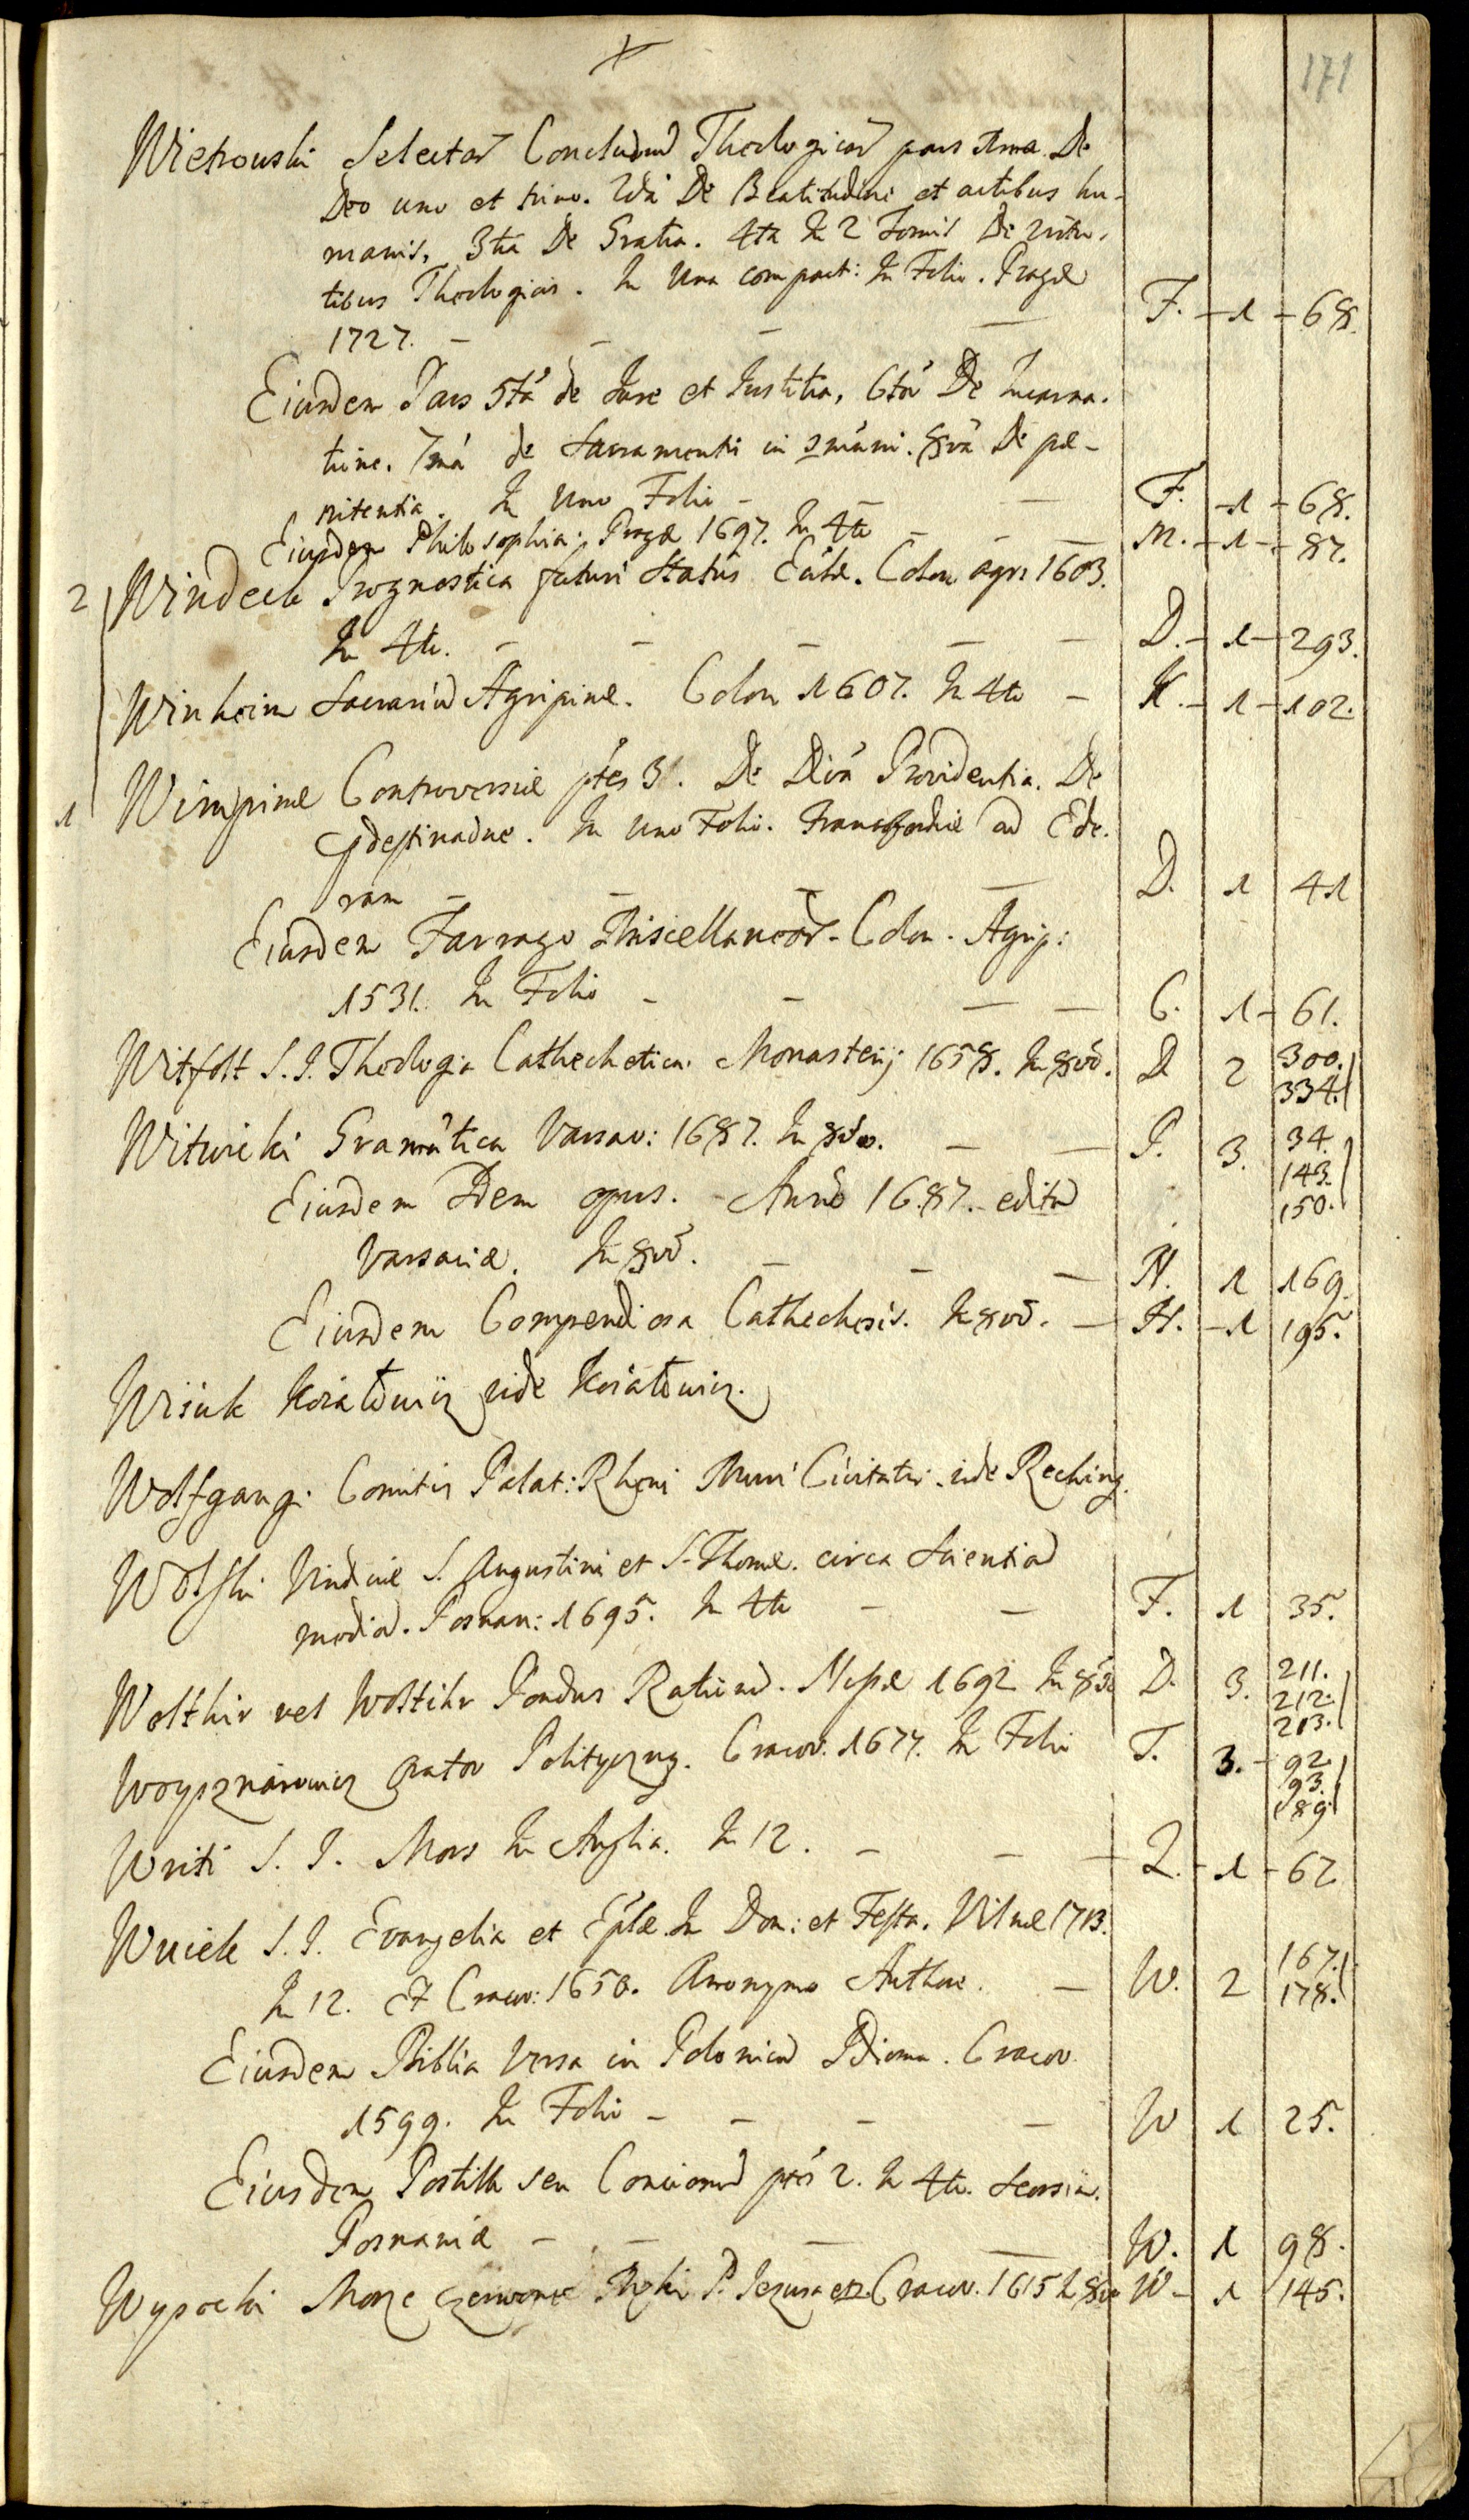 171
Wietrowski Selectar Conclusionu Theologicar pars 1ma De
Deo uno et trino. 2da De Beatitudine et actibus hu-
manis, 3tia De Gratia. 4ta In 2 Tomis De virtu-
tibus Theologicis. In Una compact: In Folio. Pragæ
1727. - - - - F. - 1 - 68.
Eiusdem Pars 5ta de Jure et Justitia, 6ta De Incarna-
tione. 7ma de Sacramentis in gnãri. 8va De pæ-
nitentia. In Uno Folio - - - F. - 1 - 68.
Eiusdem Philosophia: Pragæ 1697. In 4to - - - M. - 1 - 87.
2 Windeck Prognostica futuri Status Eccliæ. Colon agr: 1603.
In 4to. - - - - - D. - 1 - 293.
Winheim Sacrariu Agripinæ. Colon 1607. In 4to - K. - 1 - 102.
1 Wimpinæ Controversiæ ptes 3. De Divã Providentia. De
Pdestinaõne. In Uno Folio. Francofordiæ ad Ede-
ram - - - - D. 1 41
Eiusdem Farrago Miscellaneor. Colon. Agrip:
1531. In Folio - - - - C. 1 - 61.
Witfelt S. J. Theologia Cathechetica. Monasterij 1658. In 8vo. D 2 300.
334.
Witwicki Gramãtica Varsav: 1687. In 8vo. - - P. 3. 34.
143.
150.
Eiusdem Idem opus. Anno 1687. editu
Varsaviæ. In 8vo. - - - N. 1 169.
Eiusdem Compendiosa Cathechesis. In 8vo. - H. - 1 195.
Wijuk Koiałowicz vide Koiałowicz.
Wolfgangi Comitis Palat: Rheni Muri Civitatis vide Reching.
Wolski Vindiciæ S. Augustini et S. Thomæ. circa Scientia
media. Posnan: 1695. In 4to - - F. 1 35.
Wolthir vel Woltihr Pondus Rationu. Nissæ 1692 In 8vo D. 3. 211.
212.
213.
Woysznarowicz Orator Polityczny. Cracov. 1677. In Folio T. 3. - 92.
93.
89.
Writi S. J. Mors In Anglia. In 12. - - - Q. - 1 - 62
Wuiek S. J. Evangelia et Eplæ In Dom: et Festa. Vilnæ 1713.
In 12. Et Cracov: 1650. Anonymo Authore. - W. 2 167.
178.
Eiusdem Biblia Versa in Polonicu Idioma. Cracov.
1599. In Folio - - - - W 1 25.
Eiusdem Postilla seu Concionu ptes 2. In 4to. Seorsiva.
Posnaniæ - - - - W. 1 98.
Wysocki Morze czerwone Męki P. Jezusa etc. Cracov. 1615 In 8vo W - 1 145.